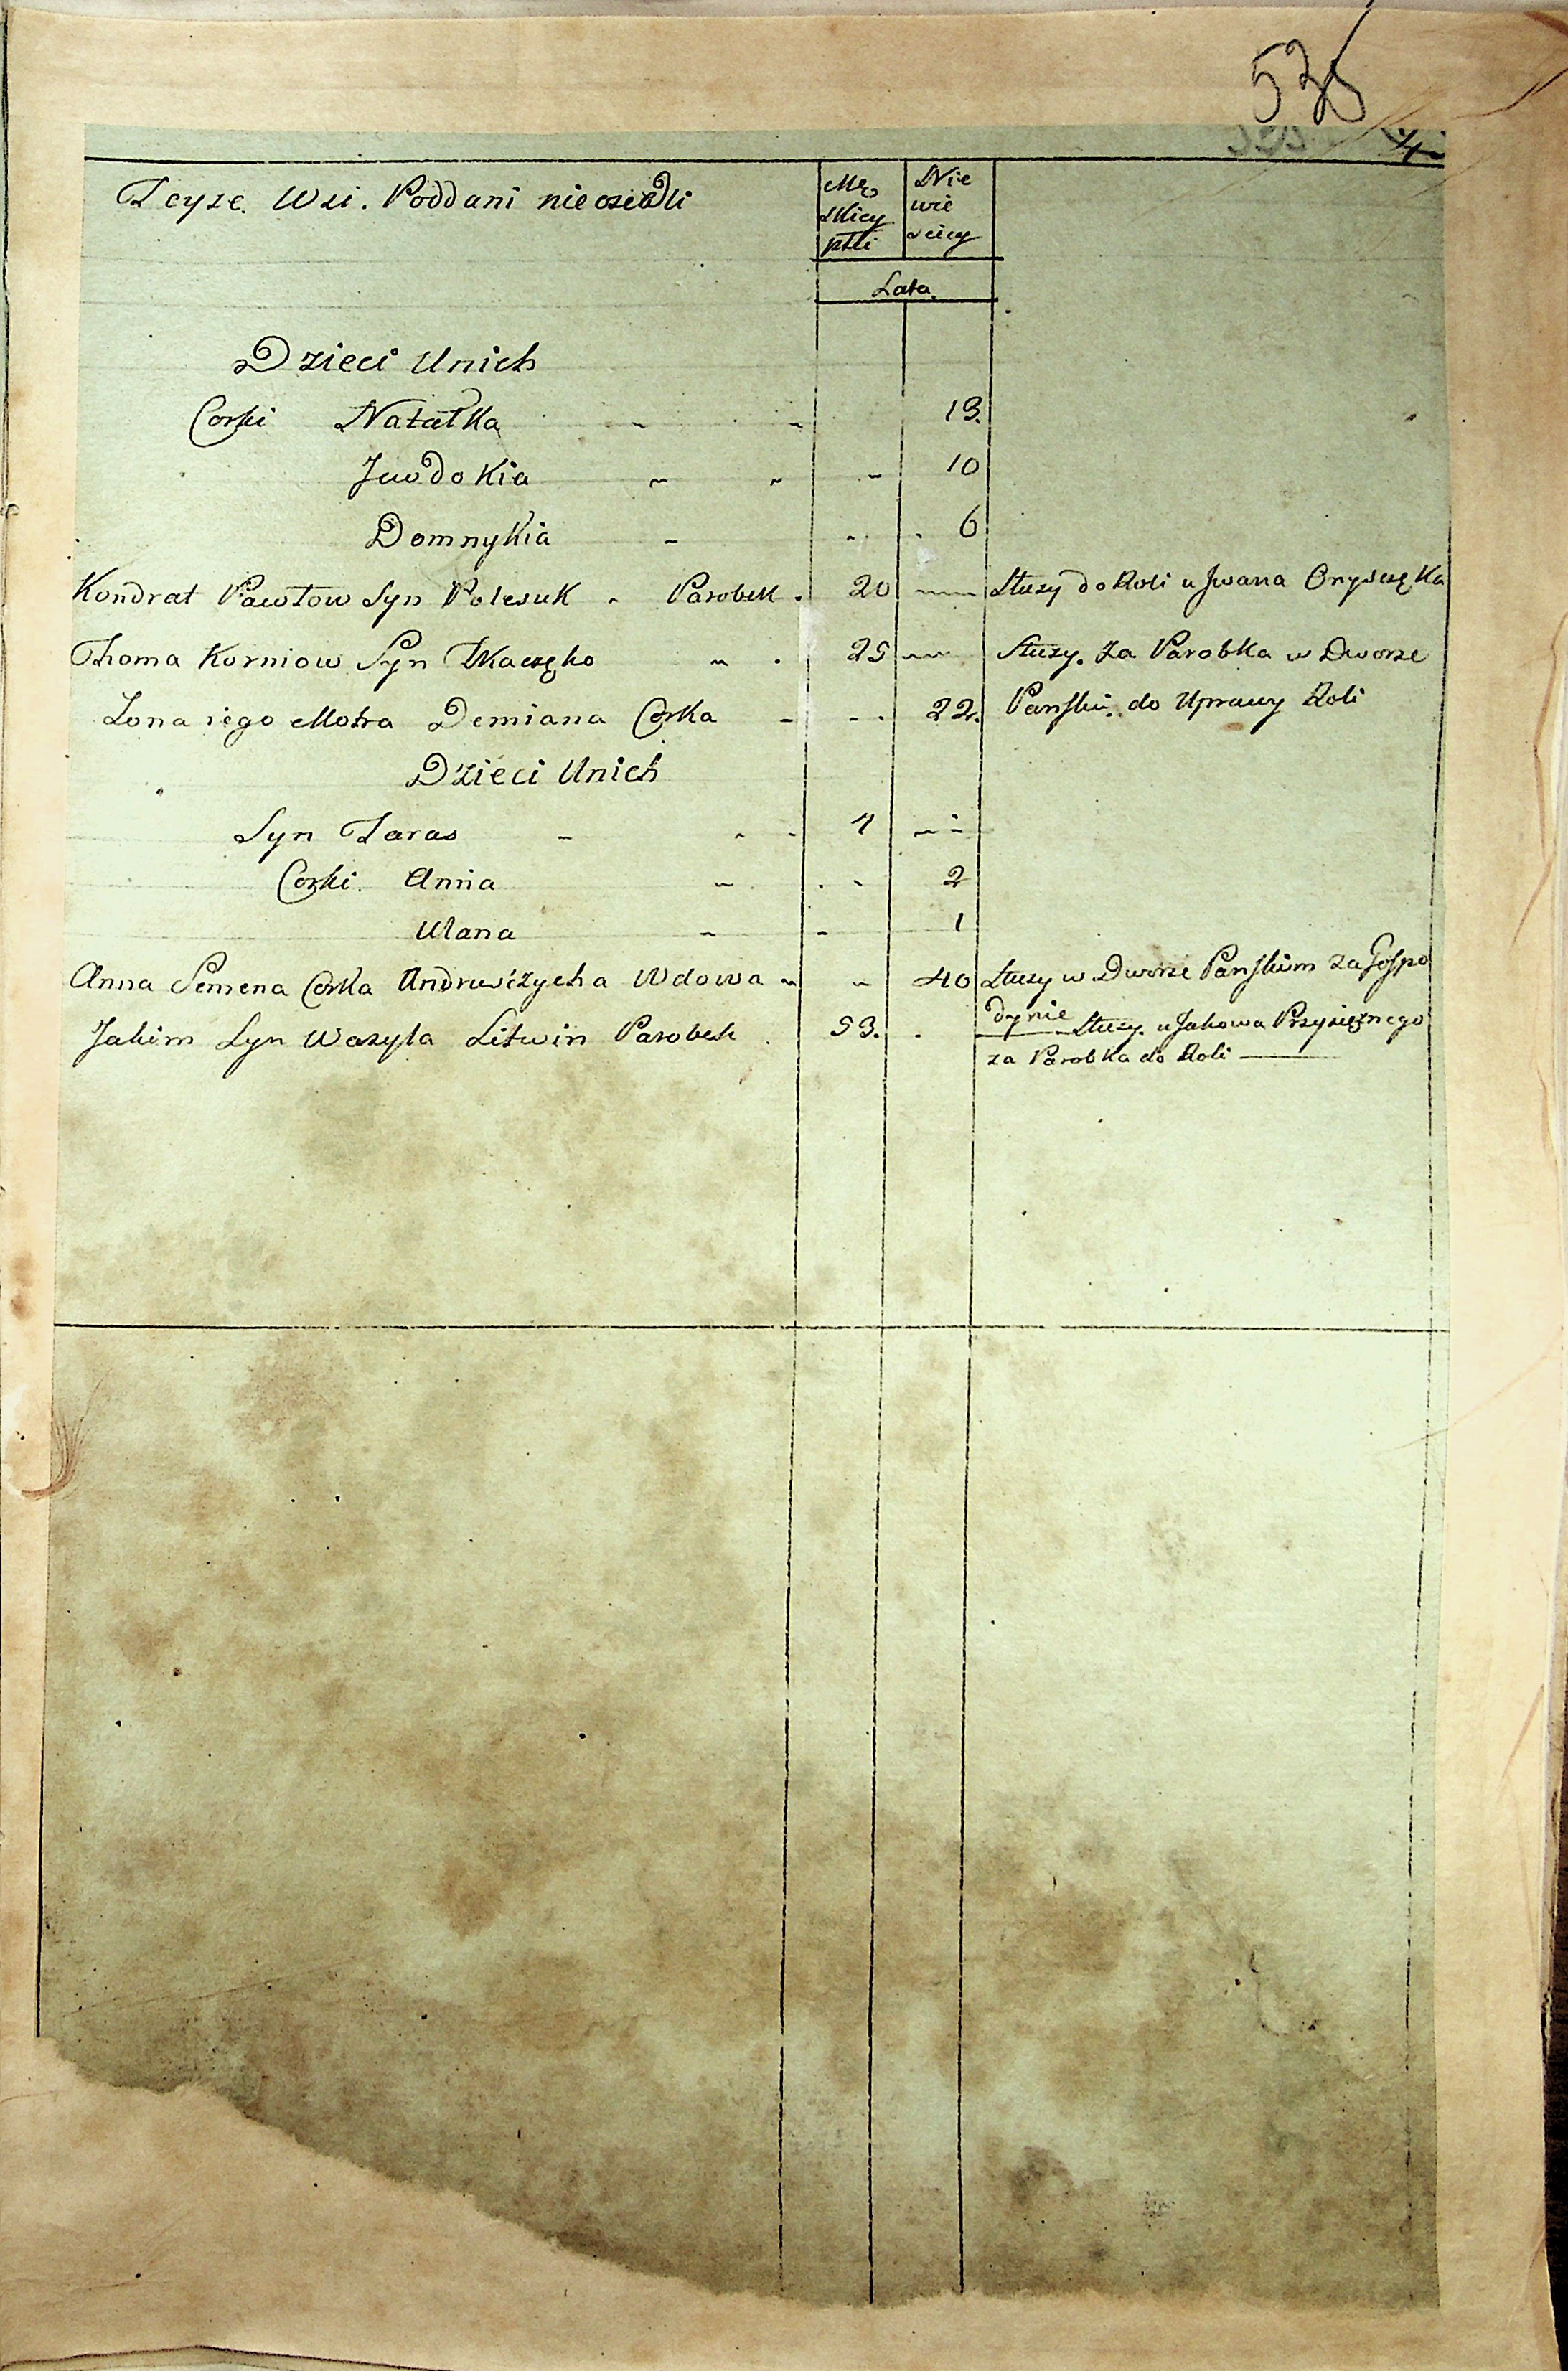 535
Teyze Wsi. Poddani nieosiedli
Mę
skiey
płci
Nie
wie
sciey
Lata.
Dzieci Unich
Corki Natałka 13.
Jwdokia 10
Domnykia 6
Kondrat Pawłow Syn Polesuk Parobek. 20 Służy do Roli u Jwana Onyszczęka
Thoma Korniow Syn Tkaczęko 25 Służy. za Parobka w Dworze
Zona iego Motra Demiana Corka 22. Pańskim. do Uprawy Roli
Dzieci Unich
Syn Taras 4
Corki. Anna 2
Ulana 1
Anna Semena Corka Andruszczycha Wdowa 40 Służy w Dworze Pańskim za Gospo
dynie
Jakim Syn Wasyla Litwin Parobek 53. Służy. u Jakowa Przysiężnego
za Parobka do Roli